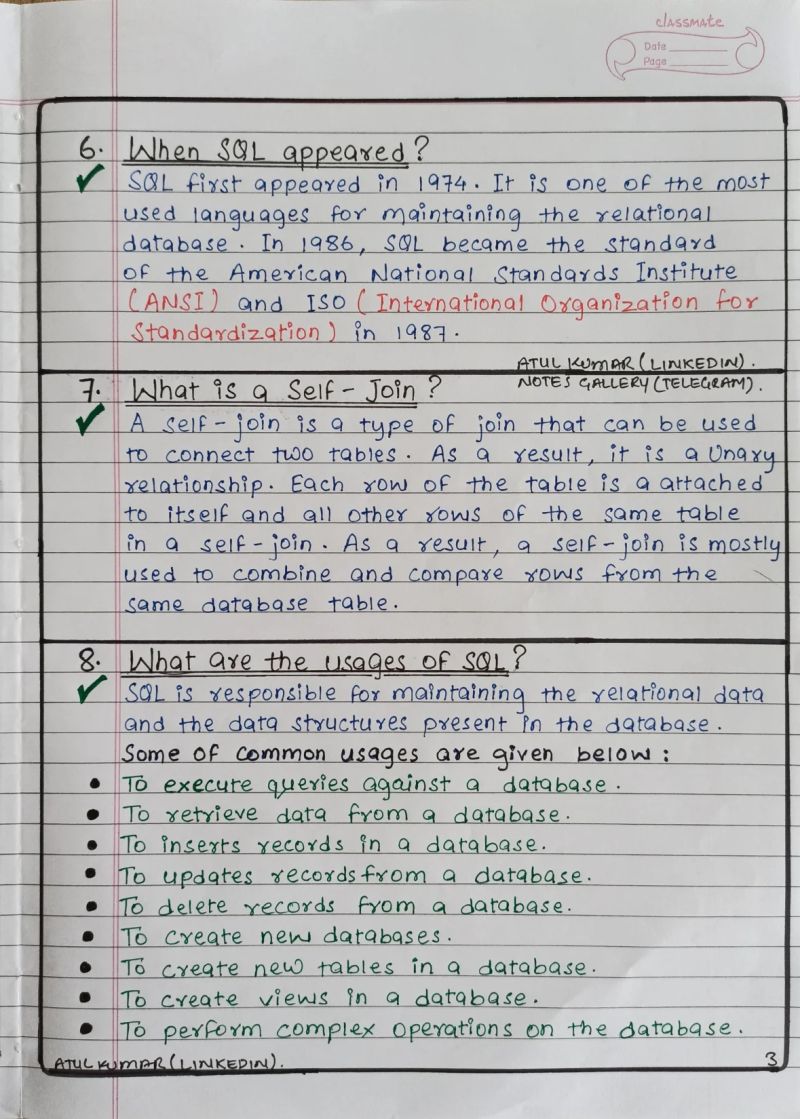 classmate
Date
Page
6. When SQL appeared?
SQL first appeared in 1974. It is one of the most
used languages for maintaining the relational
database. In 1986, SQL became the standard
of the American National Standards Institute
(ANSI) and ISO (International Organization for
Standardization) in 1987.
ATUL KUMAR (LINKEDIN).
7. What is a Self-Join?
NOTES GALLERY (TELEGRAM).
A self-join is a type of join that can be used
to connect two tables. As a result, it is a Unary
relationship. Each row of the table is a attached
to itself and all other rows of the same table
in a self-join. As a result, a self-join is mostly
used to combine and compare rows from the
same database table.
8. What are the usages of SQL?
SQL is responsible for maintaining the relational data
and the data structures present in the database.
Some of common usages are given below:
• To execute queries against a database.
• To retrieve data from a database.
• To inserts records in a database.
• To updates records from a database.
• To delete records from a database.
• To create new databases.
• To create new tables in a database.
• To create views in a database.
• To perform complex operations on the database.
ATUL KUMAR (LINKEDIN).
3